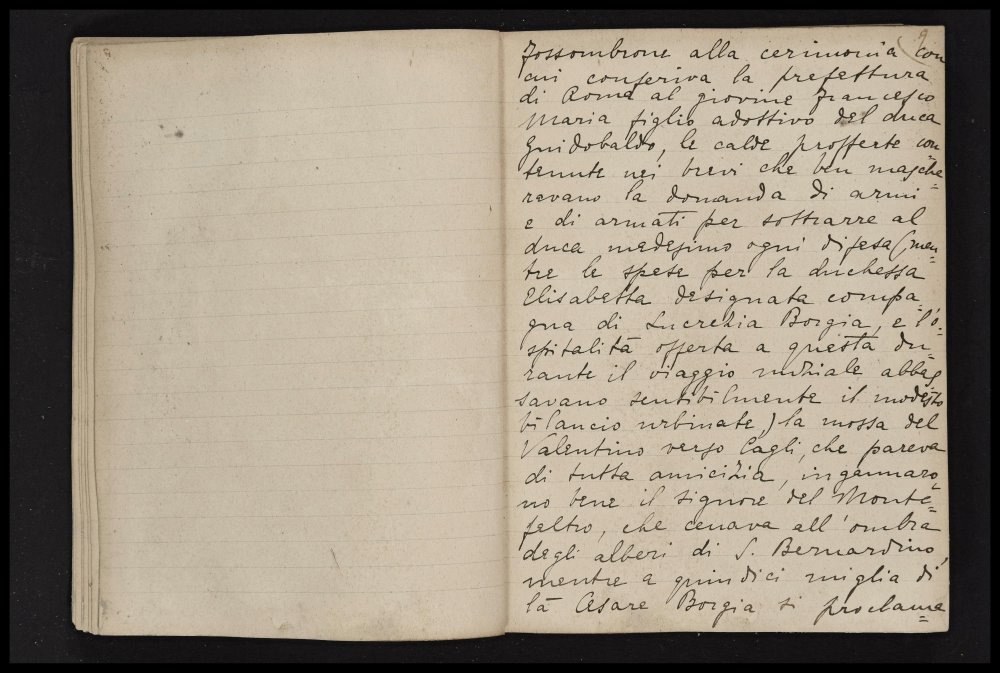 9
Fossombrone alla cerimonia con
cui conferiva la prefettura
di Roma al giovine Francesco
Maria figlio adottivo del duca
Guidobaldo, le calde profferte con=
tenute nei brevi che ben masche=
ravano la domanda di armi
e di armati per sottrarre al
duca medesimo ogni difesa (men=
tre le spese per la duchessa
Elisabetta designata compa=
gna di Lucrezia Borgia, e l'o=
spitalità offerta a questa du=
rante il viaggio nuziale abbas
savano sensibilmente il modesto
bilancio urbinate,) la mossa del
Valentino verso Cagli, che pareva
di tutta amicizia, ingannaro=
no bene il signore del Monte=
feltro, che cenava all'ombra
degli alberi di S. Bernardino,
mentre a quindici miglia di
là Cesare Borgia si proclama=